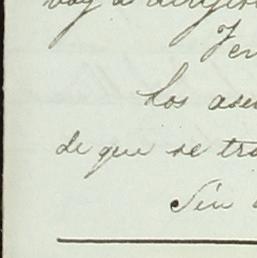 voy a dirigir
y
en
Los ase
de que se tra
Sin